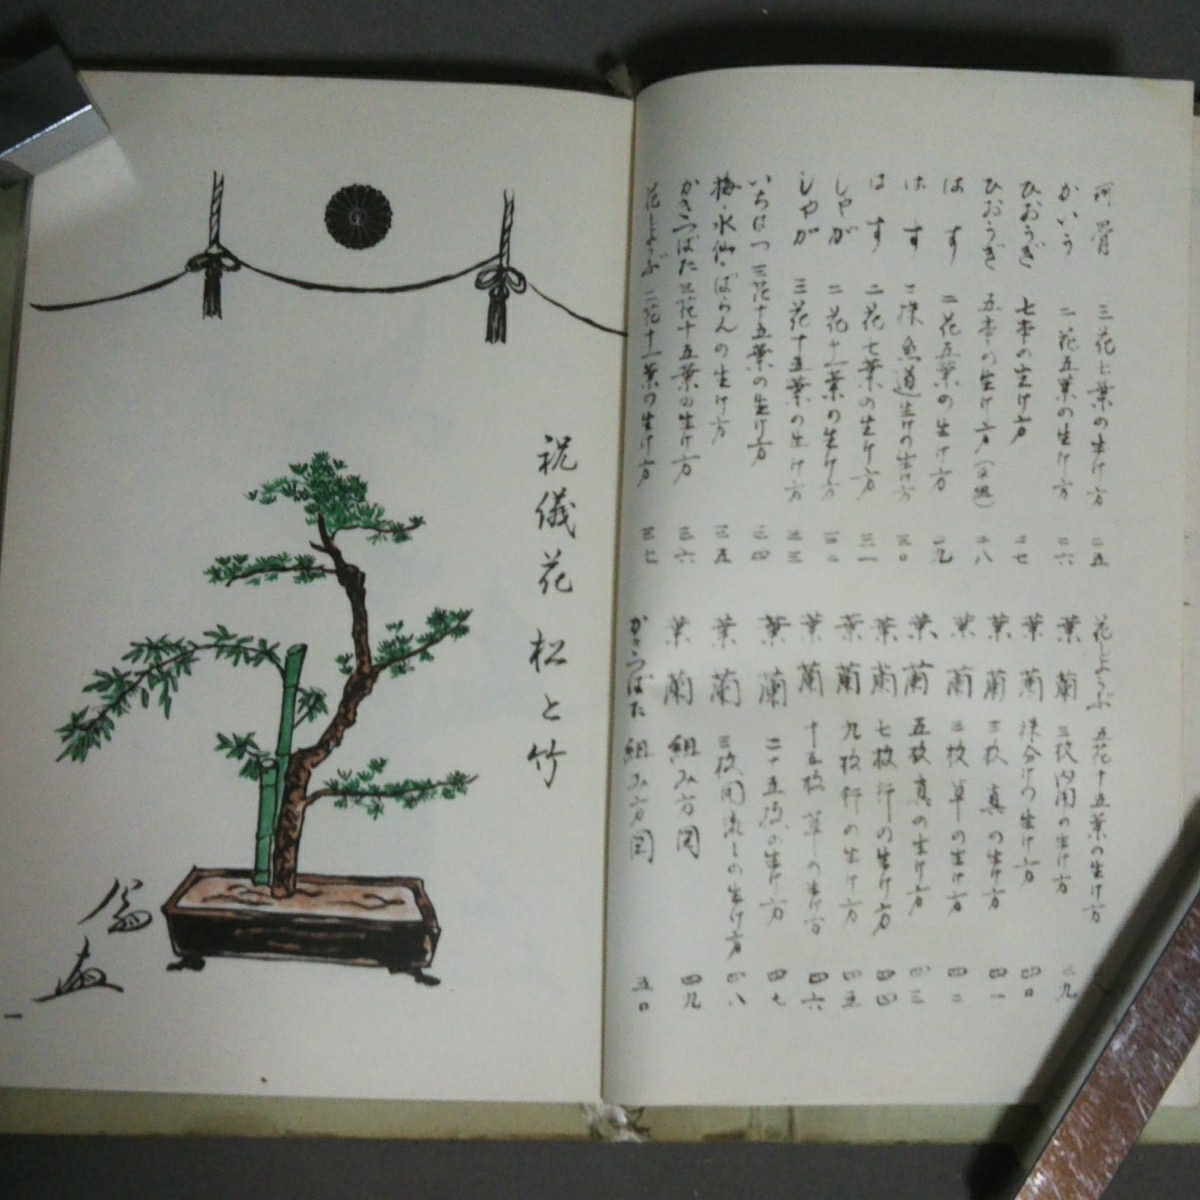 河骨 三花七葉の生け方 二五
かいう 二花五葉の生け方 二六
ひおうぎ 七本の生け方 二七
ひおうぎ 五本の生け方 二八
はす 二花五葉の生け方 二九
はす 二株魚道生けの生け方 三〇
はす 二花七葉の生け方 三一
しやが 二花十一葉の生け方 三二
しやが 三花十五葉の生け方 三三
いちはつ 三花十五葉の生け方 三四
梅・水仙・ばらんの生け方 三五
かきつばた 三花十五葉の生け方 三六
花しようぶ 二花十一葉の生け方 三七
花しようぶ 五花十五葉の生け方
葉蘭 三枚内用の生け方 三九
葉蘭 株分けの生け方 四〇
葉蘭 三枚真の生け方 四一
葉蘭 三枚草の生け方 四二
葉蘭 五枚真の生け方 四三
葉蘭 七枚行の生け方 四四
葉蘭 九枚行の生け方 四五
葉蘭 十五枚草の生け方 四六
葉蘭 二十五枚の生け方 四七
葉蘭 三枚用流しの生け方 四八
葉蘭 組み方図 四九
かきつばた 組み方図 五〇
祝儀花 松と竹
一